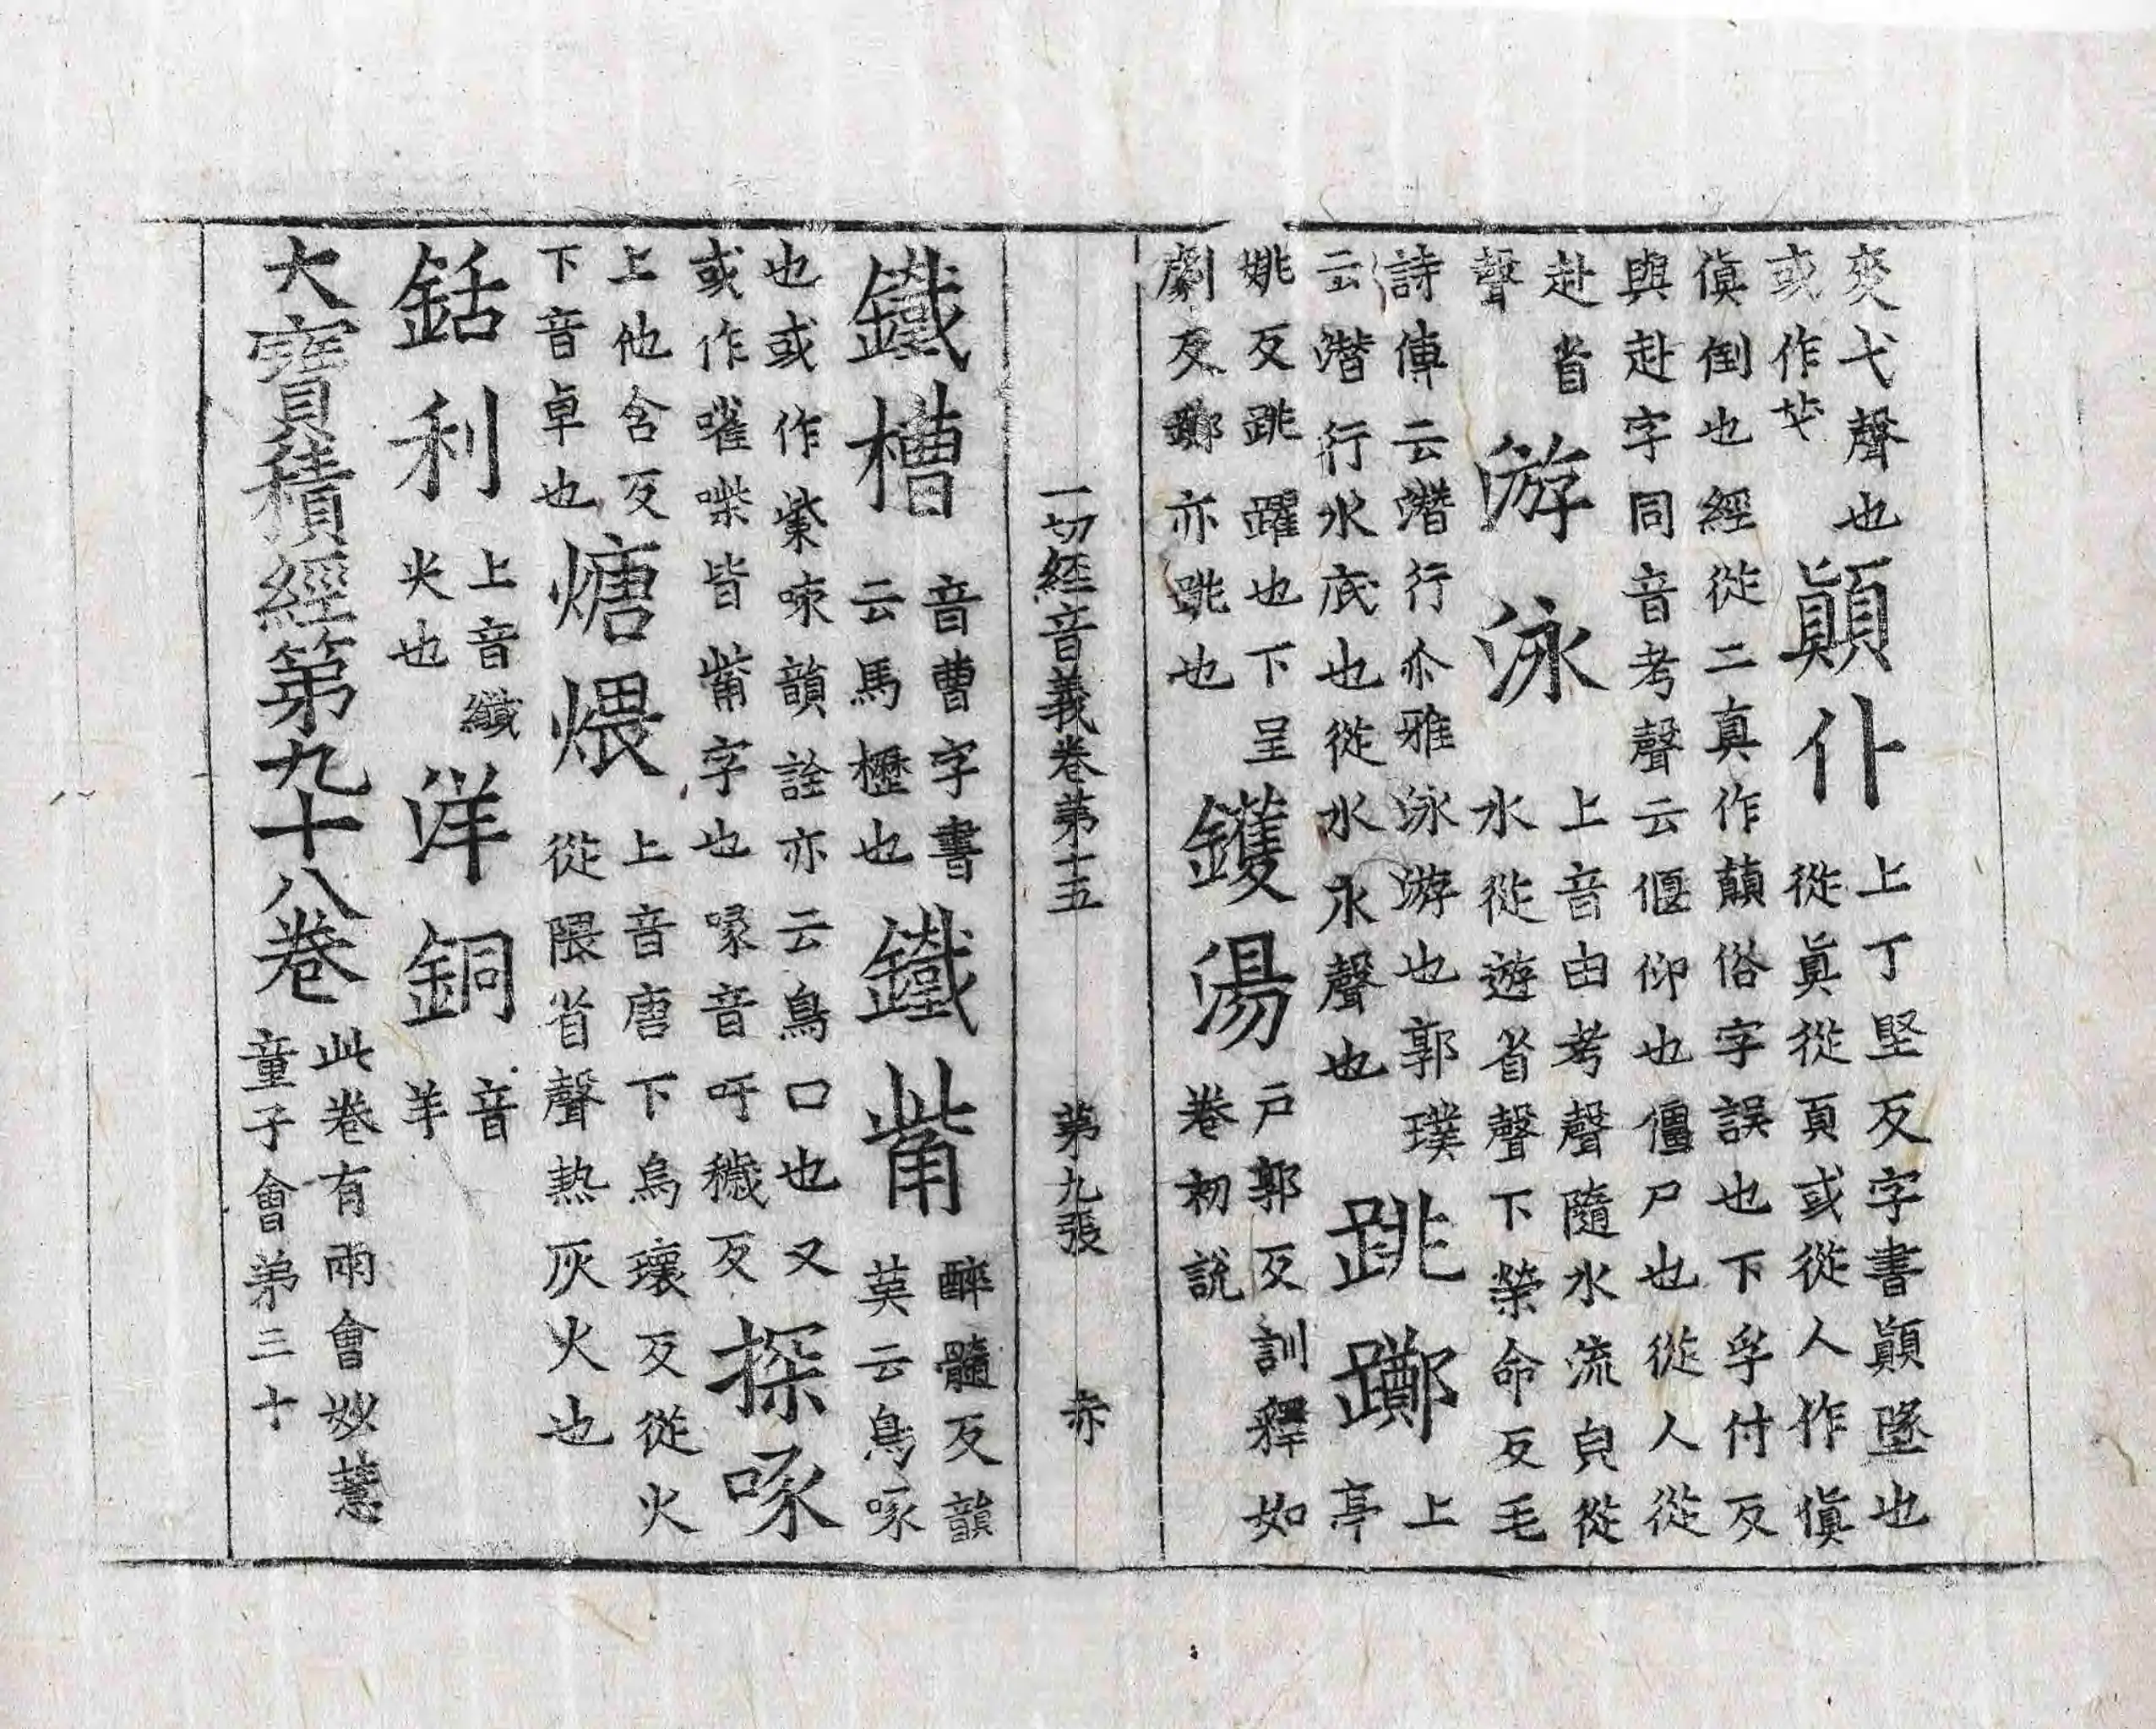 奕弋聲也
或作𠦂
顛仆
上丁堅反字書顛墜也
從眞從頁或從人作傎
傎倒也經從二真作顛俗字誤也下孚付反
與赴字同音考聲云偃仰也僵尸也從人從
赴省
聲
游泳
上音由考聲隨水流皃從
水從遊省聲下榮命反毛
詩傳云潛行尒雅泳游也郭璞
云潛行水底也從水永聲也
跳躑
上亭
姚反跳躍也下呈
劇反躑亦跳也
鑊湯
戶郭反訓釋如
卷初說
一切經音義卷第十五　第九張　赤
鐵槽
音曹字書
云馬櫪也
鐵觜
醉髓反韻
英云鳥啄
也或作㭰㖩韻詮亦云鳥口也又
或作嗺㗪皆觜字也喙音吁穢反
探啄
上他含反
下音卓也
煻煨
上音唐下烏瓌反從火
從隈省聲熱灰火也
銛利
上音纖
火也
洋銅
音
羊
大寶積經第九十八卷
此卷有兩會妙慧
童子會弟三十